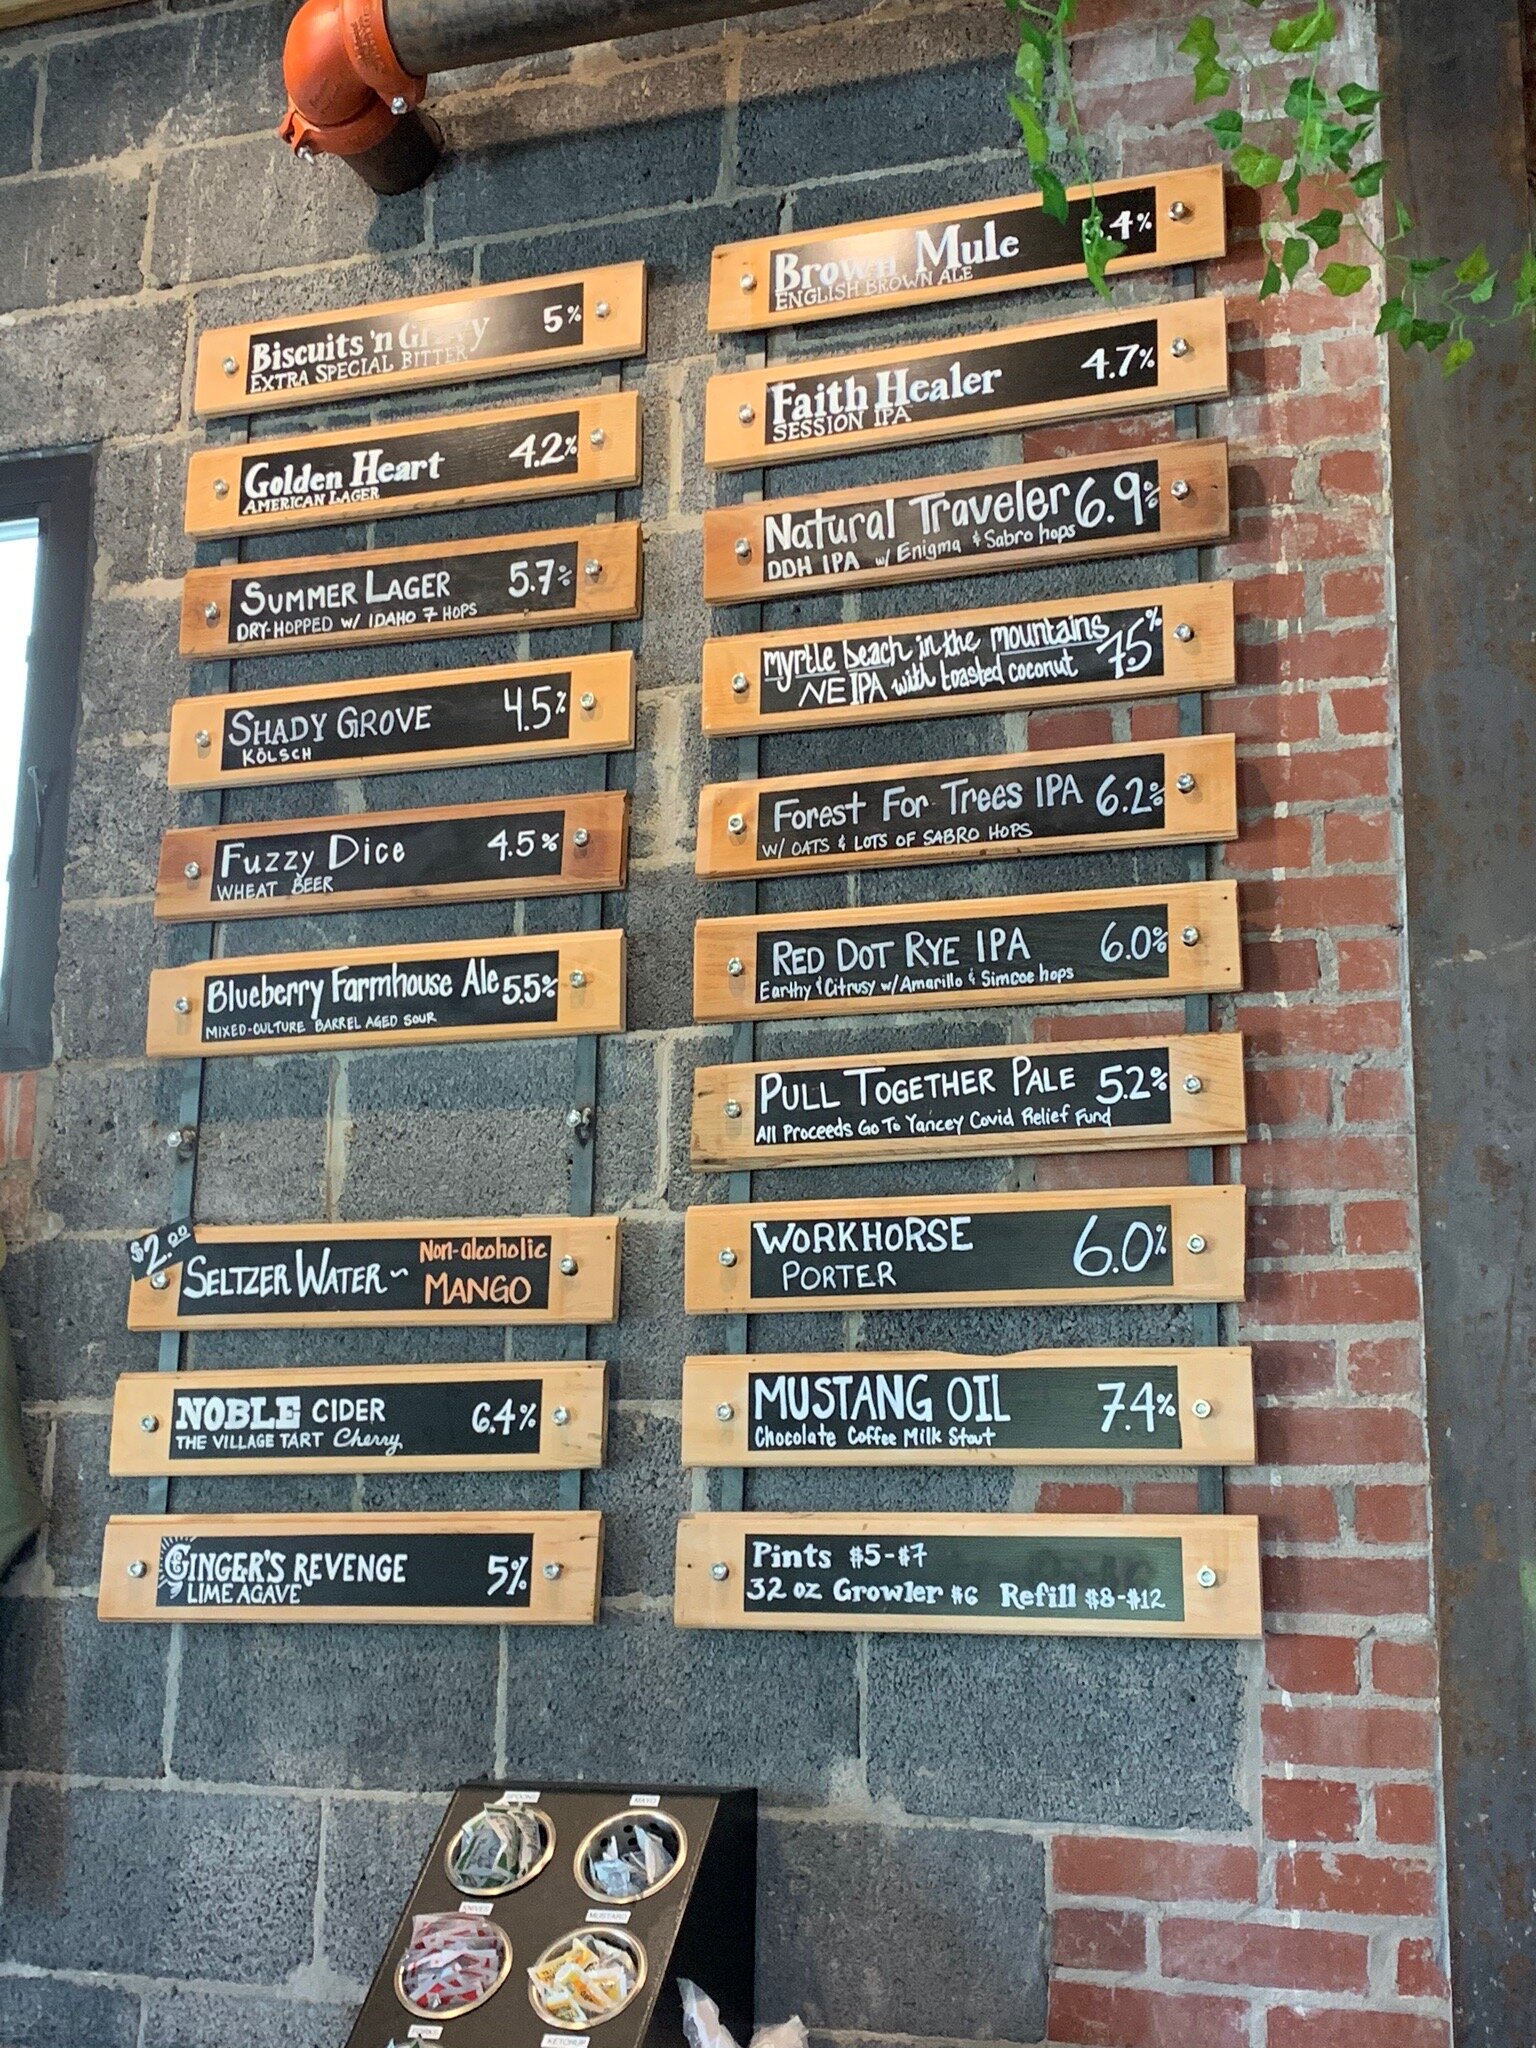 Biscuits 'n Gravy 5%
EXTRA SPECIAL BITTER
Golden Heart 4.2%
AMERICAN LAGER
SUMMER LAGER 5.7%
DRY-HOPPED W/ IDAHO 7 HOPS
SHADY GROVE 4.5%
KÖLSCH
Fuzzy Dice 4.5%
WHEAT BEER
Blueberry Farmhouse Ale 5.5%
MIXED-CULTURE BARREL AGED SOUR
$2.00
SELTZER WATER~ Non-alcoholic
MANGO
NOBLE CIDER 6.4%
THE VILLAGE TART Cherry
GINGER'S REVENGE 5%
LIME AGAVE
Brown Mule .4%
ENGLISH BROWN ALE
Faith Healer 4.7%
SESSION IPA
Natural Traveler 6.9%
DDH IPA w/ Enigma & Sabro hops
myrtle beach in the mountains 7.5%
NEIPA with toasted coconut
Forest For Trees IPA 6.2%
W/ OATS & LOTS OF SABRO HOPS
RED DOT RYE IPA 6.0%
Earthy & Citrusy w/ Amarillo & Simcoe hops
PULL TOGETHER PALE 5.2%
All Proceeds Go To Yancey Covid Relief Fund
WORKHORSE 6.0%
PORTER
MUSTANG OIL 7.4%
Chocolate Coffee Milk Stout
Pints $5-$7
32 oz Growler $6 Refill $8-$12
SPOONS
MAYO
KNIVES
MUSTARD
FORKS
KETCHUP